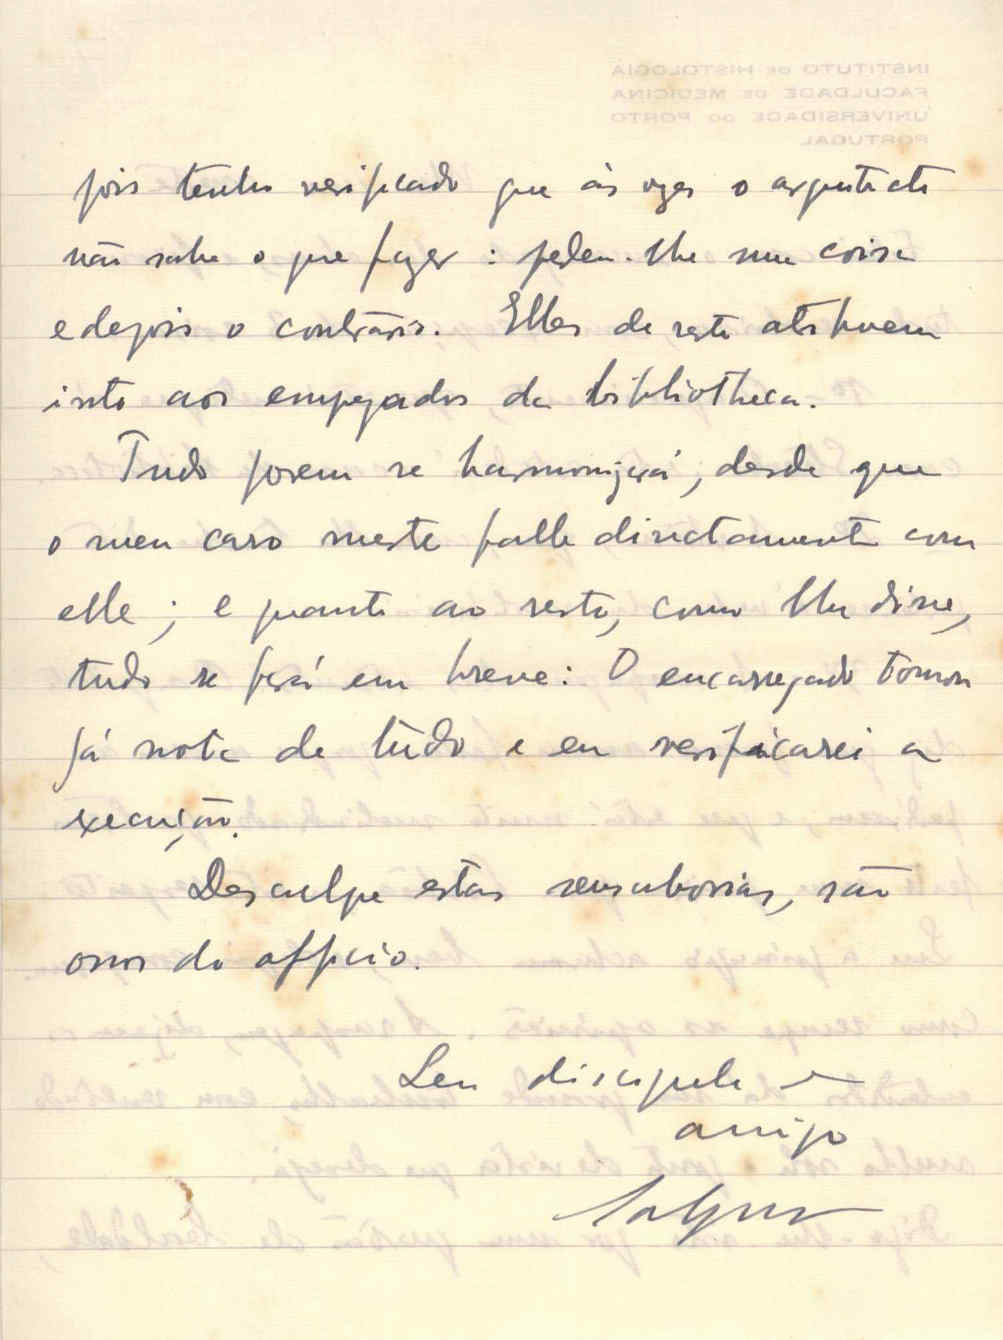 INSTITUTO DE HISTOLOGIA
FACULDADE DE MEDICINA
UNIVERSIDADE DO PORTO
PORTUGAL
pois tenho verificado que ás vezes o arquitecto
não sabe o que fazer : pedem-lhe uma coisa
e depois o contrário. Elles de resto attribuem
isto aos empregados da bibliotheca.
Tudo porem se harmonizará, desde que
o meu caro mestre falle directamente com
elle ; e quanto ao resto, como lhe disse,
tudo se fará em breve : O encarregado tomou
já nota de tudo e eu verificarei a
execução.
Desculpe estas sensaborias, são
ossos do officio.
Seu discipulo e
amigo